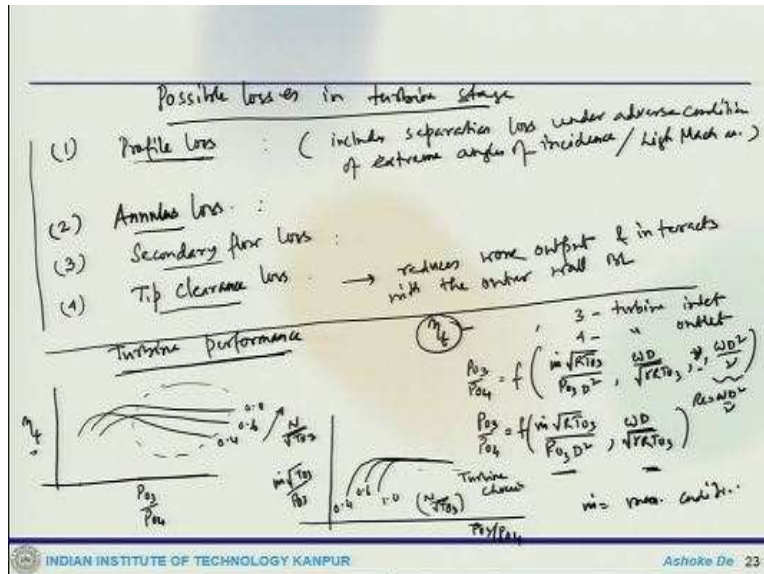 Possible losses in turbine stage
(1) Profile loss : ( includes separation loss under adverse condition
of extreme angles of incidence / High Mach no.)
(2) Annulus loss :
(3) Secondary flow loss :
(4) Tip clearance loss → reduces work output & interacts
with the outer wall BL
Turbine performance
η_t
3 - turbine inlet
4 - " outlet
P03/P04 = f( ṁ√RT03 / P03 D², ωD/√γRT03, γ, ωD²/ν )
Re = ωD²/ν
P03/P04 = f( ṁ√RT03 / P03 D², ωD/√γRT03 )
η_t
0.6
0.4
N/√T03
P03/P04
ṁ√T03/P03
0.4 0.6 1.0 (N/√T03)
Turbine
P03/P04
ṁ = max. condi..
INDIAN INSTITUTE OF TECHNOLOGY KANPUR
Ashoke De 23